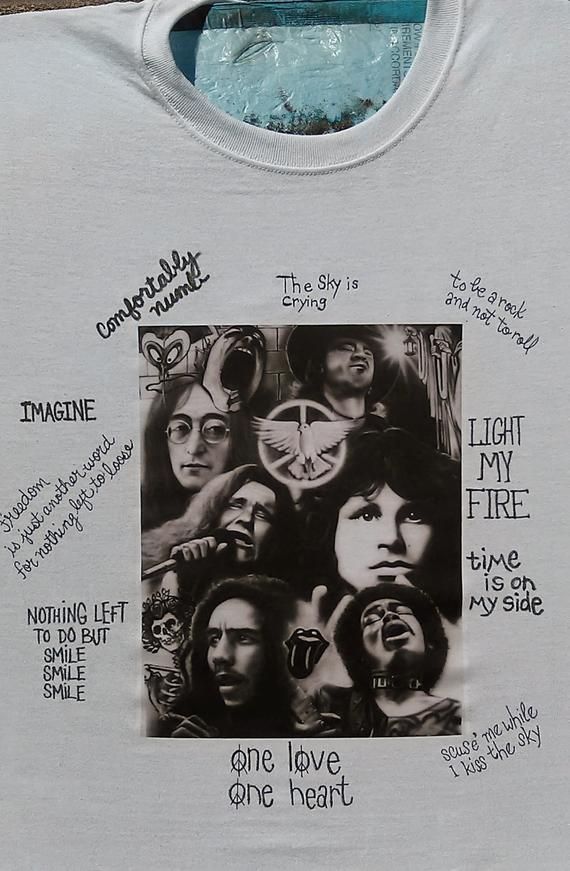 comfortably
numb
The Sky is
crying
to be a rock
and not to roll
IMAGINE
LIGHT
MY
FIRE
freedom
is just another word
for nothing left to loose
time
is on
my side
NOTHING LEFT
TO DO BUT
SMILE
SMILE
SMILE
scuse' me while
I kiss the sky
one love
one heart